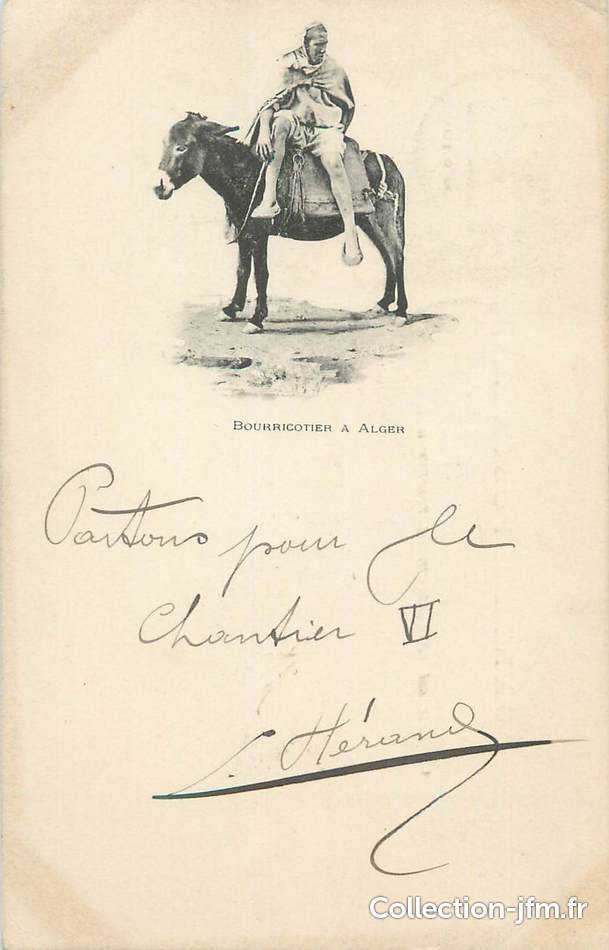 BOURRICOTIER A ALGER
Partons pour le
Chantier VI
Collection-jfm.fr